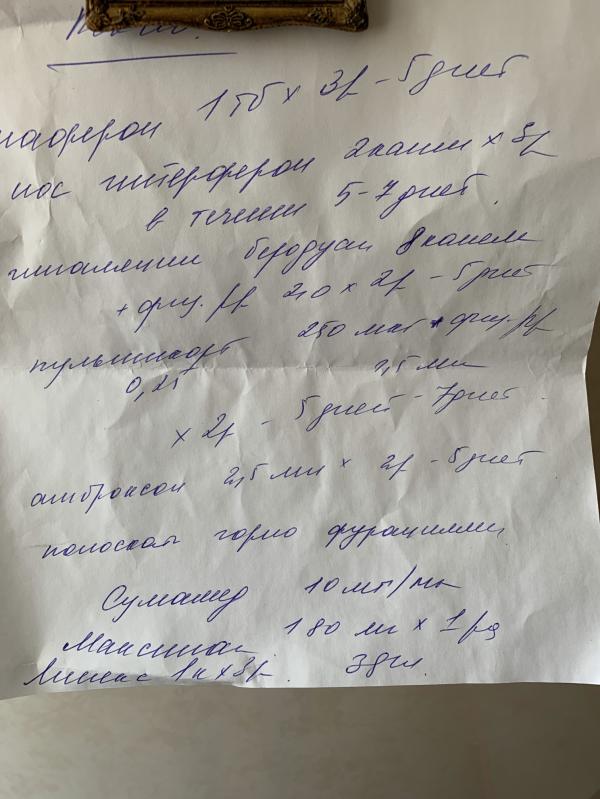 1 тб х 3р - 5 дней
нос интерферон 2 капли х 5р
в течении 5-7 дней
ингаляции беродуал 8 капель
+ физ. рр 2,0 х 2р - 5 дней
пульмикорт 250 мкг + физ. рр
0,25 2,5 мл
х 2р - 5 дней - 7 дней
амброксол 2,5 мл х 2р - 5 дней
полоскать горло фурациллин
Сумамед 10 мг/мк
180 мг х 1р
1к х 3р. 3 дн.